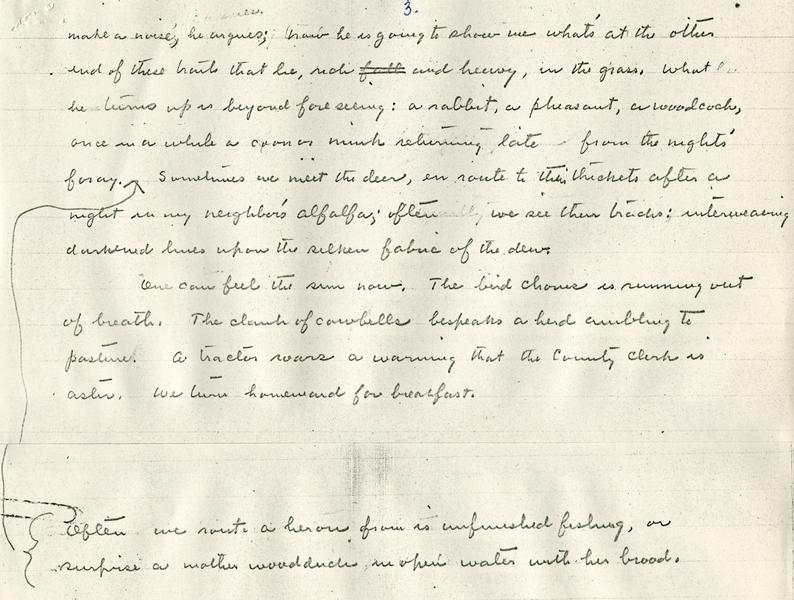 3.
make a noise, he argues; now he is going to show me what's at the other
end of these trails that lie, rich full and heavy, in the grass. What
he turns up is beyond foreseeing: a rabbit, a pheasant, a woodcock,
once in a while a coon or mink returning late from the nights'
foray. Sometimes we meet the deer, en route to their thickets after a
night in my neighbor's alfalfa; often we see their tracks: interweaving
darkened lines upon the silken fabric of the dew.
One can feel the sun now. The bird chorus is running out
of breath. The clank of cowbells bespeaks a herd ambling to
pasture. A tractor roars a warning that the County Clerk is
astir. We turn homeward for breakfast.
Often we route a heron from is unfinished fishing, or
surprise a mother woodduck in open water with her brood.